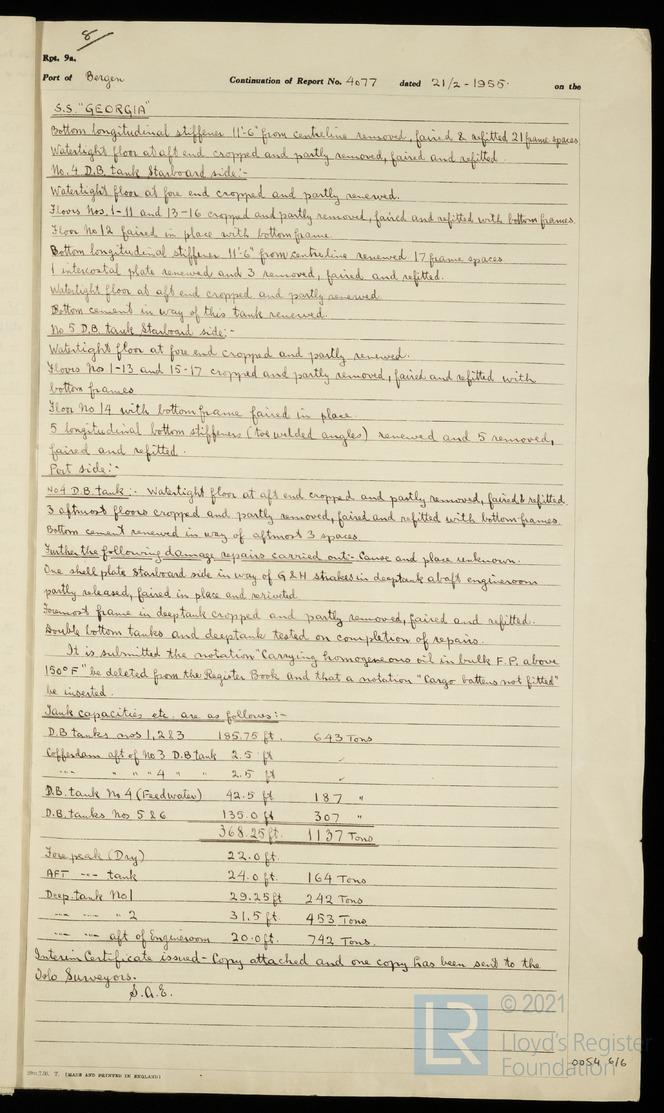 8
Rpt. 9a.
Port of Bergen Continuation of Report No. 4077 dated 21/2-1955. on the
S.S. "GEORGIA"
Bottom longitudinal stiffener 11'-6" from centreline removed, faired & refitted 21 frame spaces
Watertight floor at aft end cropped and partly removed, faired and refitted.
No. 4 D.B. tank Starboard side:-
Watertight floor at fore end cropped and partly renewed.
Floors Nos. 1-11 and 13-16 cropped and partly removed, faired and refitted with bottom frames.
Floor No 12 faired in place with bottom frame.
Bottom longitudinal stiffener 11'-6" from centreline renewed 17 frame spaces
1 intercostal plate renewed and 3 removed, faired and refitted.
Watertight floor at aft end cropped and partly renewed
Bottom cement in way of this tank renewed.
No 5 D.B. tank Starboard side:-
Watertight floor at fore end cropped and partly renewed.
Floors No 1-13 and 15-17 cropped and partly removed, faired and refitted with
bottom frames
Floor No 14 with bottom frame faired in place.
5 longitudinal bottom stiffeners (toe welded angles) renewed and 5 removed,
faired and refitted.
Port side:-
No 4 D.B. tank:- Watertight floor at aft end cropped and partly removed, faired & refitted.
3 aftmost floors cropped and partly removed, faired and refitted with bottom frames.
Bottom cement renewed in way of aftmost 3 spaces.
Further the following damage repairs carried out:- Cause and place unknown.
One shell plate Starboard side in way of G & H strakes in deeptank abaft engineroom
partly released, faired in place and reriveted
Foremost frame in deeptank cropped and partly removed, faired and refitted.
Double bottom tanks and deeptank tested on completion of repairs.
It is submitted the notation "Carrying homogeneous oil in bulk F.P. above
150°F" be deleted from the Register Book and that a notation "Cargo battens not fitted"
be inserted.
Tank capacities etc. are as follows:-
D.B tanks nos 1, 2 & 3 185.75 ft. 643 Tons
Cofferdam aft of No 3 D.B tank 2.5 ft ✓
-"- " " " 4 " " 2.5 ft ✓
D.B. tank No 4 (Feedwater) 42.5 ft 187 "
D.B. tanks Nos 5 & 6 135.0 ft 307 "
368.25 ft. 1137 Tons
Fore peak (Dry) 22.0 ft.
AFT -"- tank 24.0 ft. 164 Tons
Deep tank No 1 29.25 ft 242 Tons
-"- -"- " 2 31.5 ft 453 Tons
-"- -"- aft of Engineroom 20.0 ft. 742 Tons.
Interim Certificate issued - Copy attached and one copy has been sent to the
Oslo Surveyors.
S.A.E.
LR © 2021
Lloyd's Register
Foundation
0054 6/6
T. (MADE AND PRINTED IN ENGLAND)